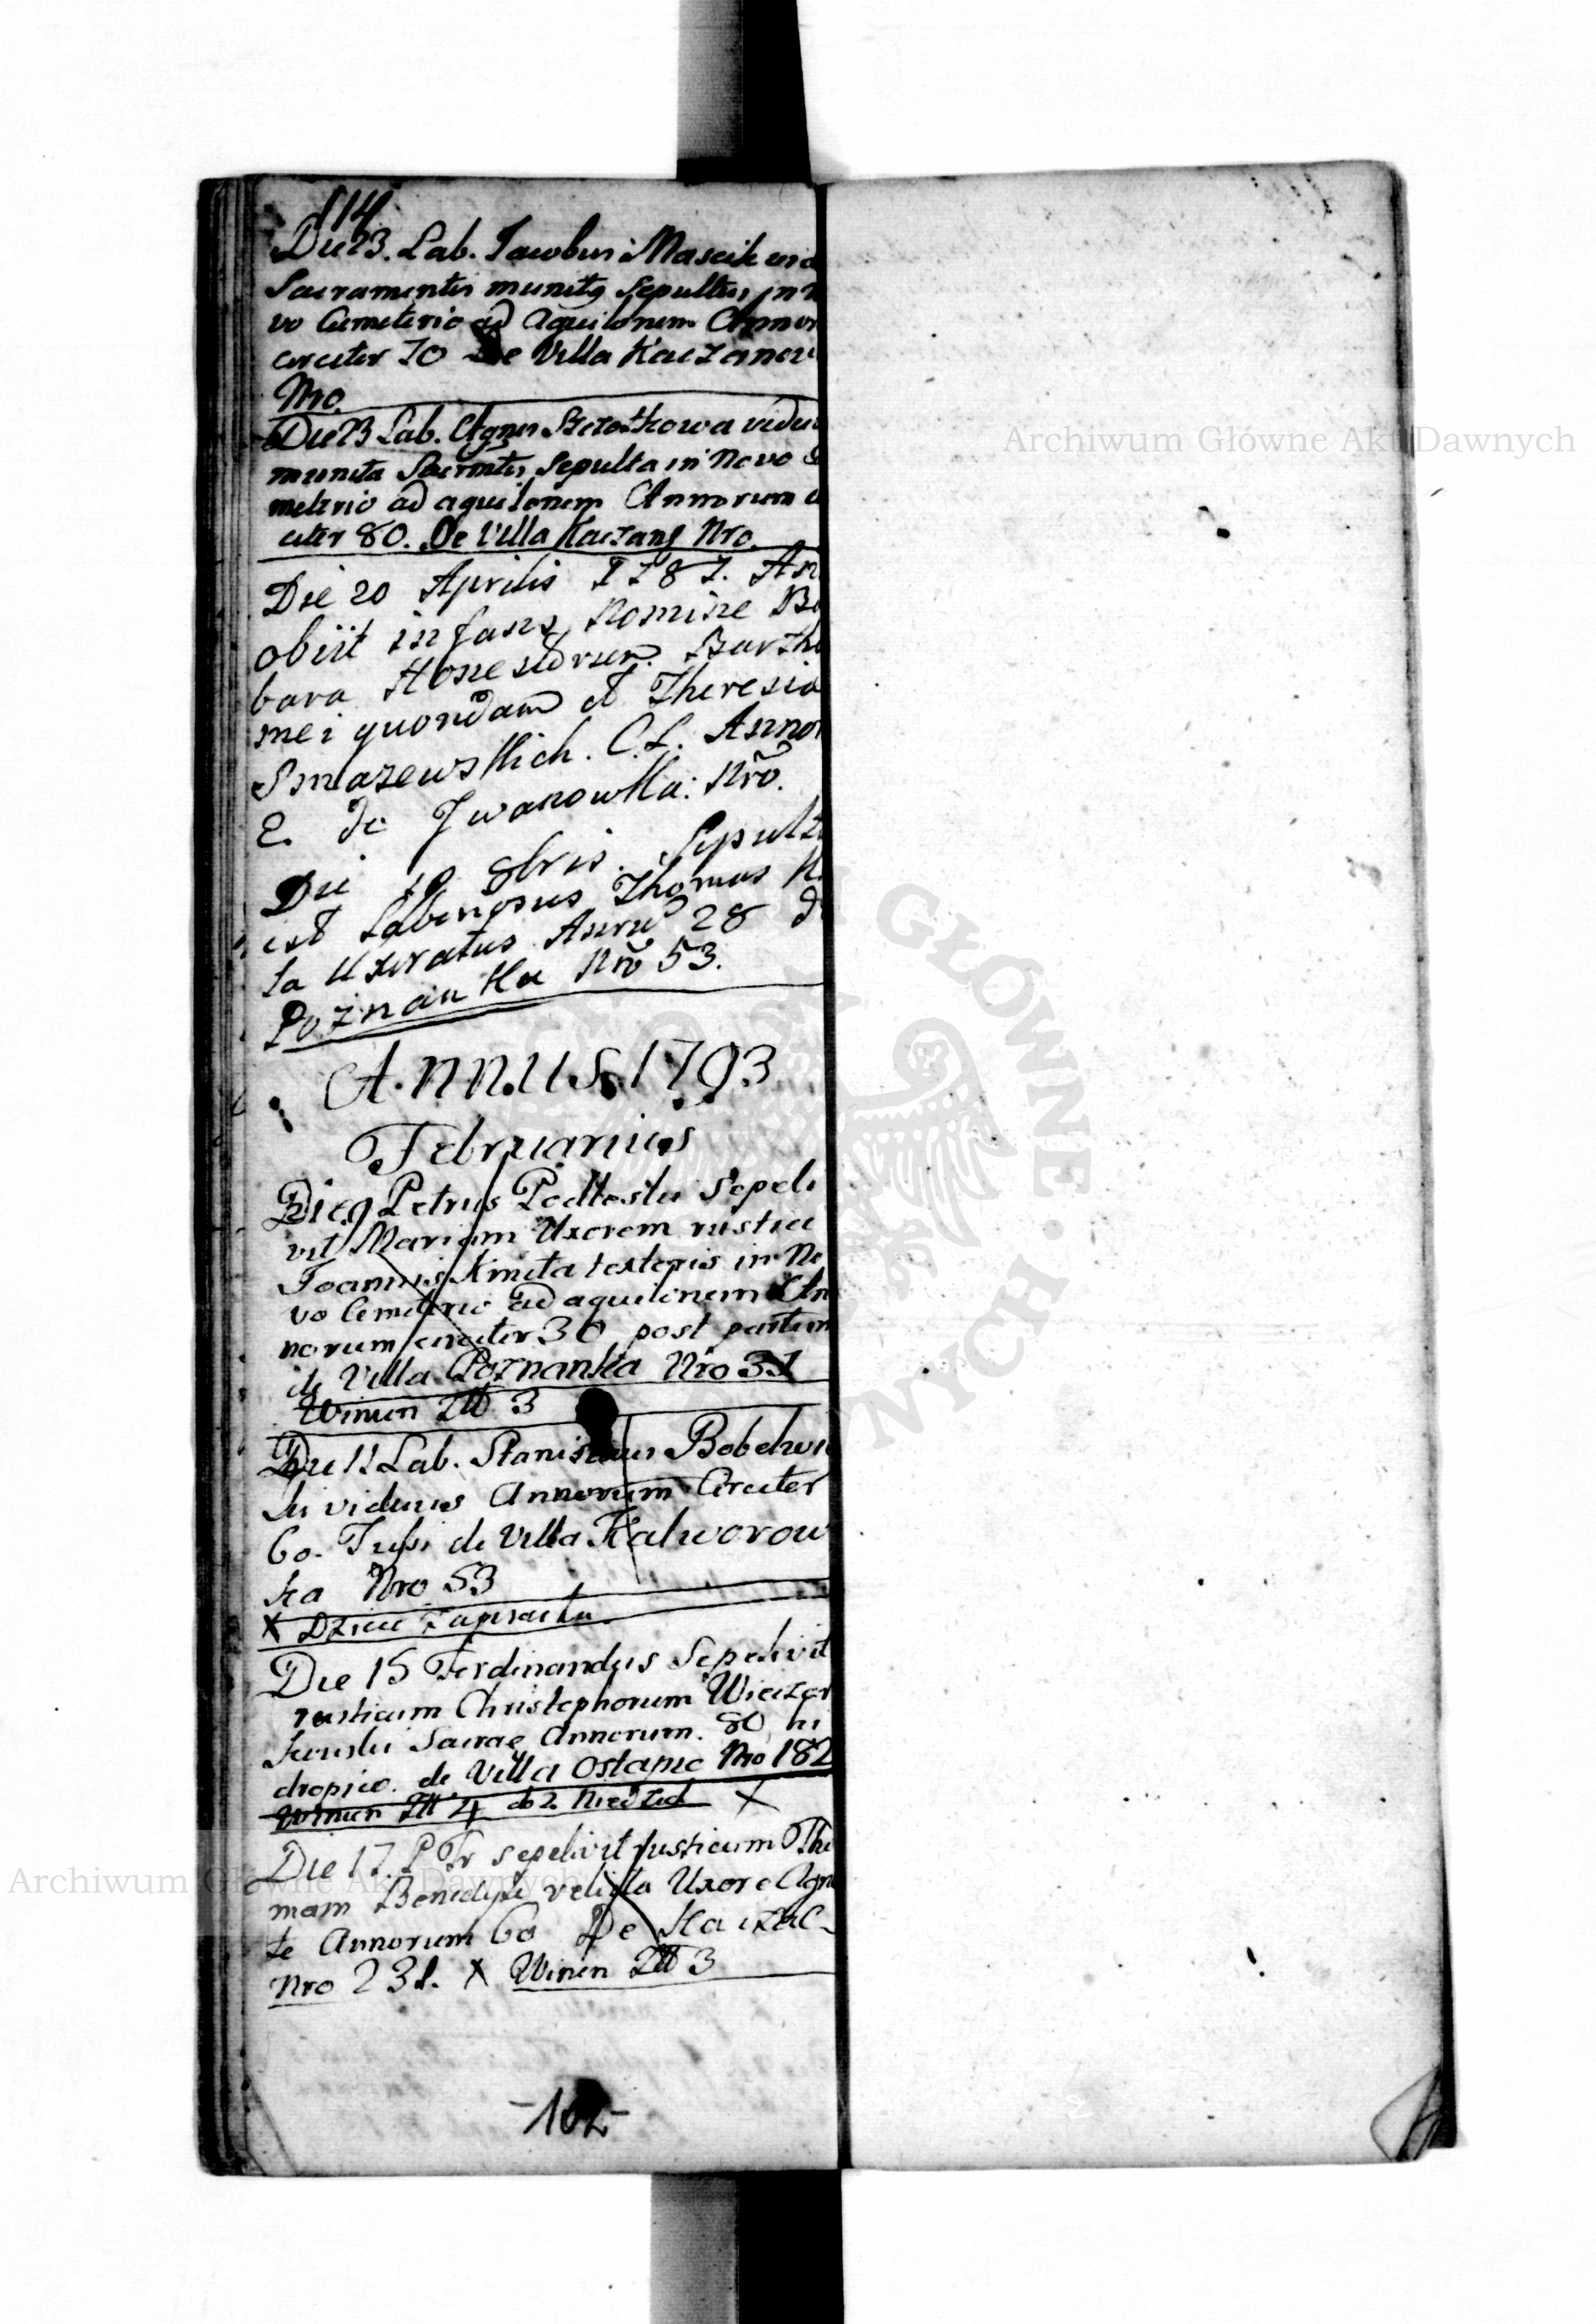 114
Die 23. Lab. Jacobus Mascik
Sacramentis munitq Sepultus in
vo Cemeterio ad Aquilonem Annor
circiter 70 De Villa Kaczanow
Nro.
Die 23 Lab. Agnes vidu
munita Sacrmtis Sepulta in Novo
meterio ad aquilonem Annorum
citer 80. De Villa Kaczan Nro.
Die 20 Aprilis 1787. An
obiit infans Nomine Ba
bara Honestorum Barth
mei quondam et Theresia
Smazewskich. C.L. Anno
2. de Iwanowka: Nro.
Die 19 8bris. Sepult
est Laboriosus Thomas
ta Uxoratus Annr 28 d
Poznanka Nro 53.
Annus 1793
Februarius
Die 9 Petrus Podkoski Sepeli
vit Mariam Uxorem rustici
Joannis Kmita textoris in No
vo Cemeterio ad aquilonem An
norum circiter 30 post partum
de Villa Poznanka Nro 31
Winien Zł 3
Die 11 Lab. Stanislaus Bobelwi
ski viduus Annorum Circiter
60. Tussi de Villa Kalworow
ka Nro 53
X Dzieci
Die 15 Ferdinandus Sepelivit
rusticum Christophorum Wieczor
kowski Annorum. 80 hi
dropico. de Villa Ostapie Nro 182
Winien Zł 4 do 2. Niedziel X
Die 17. P Fr sepelivit rusticum Tho
mam relicta Uxore Agne
te Annorum 60 De Kaczan
Nro 231. X Winien Zł 3
-102-
Archiwum Główne Akt Dawnych
Archiwum Główne Akt Dawnych
GŁÓWNE